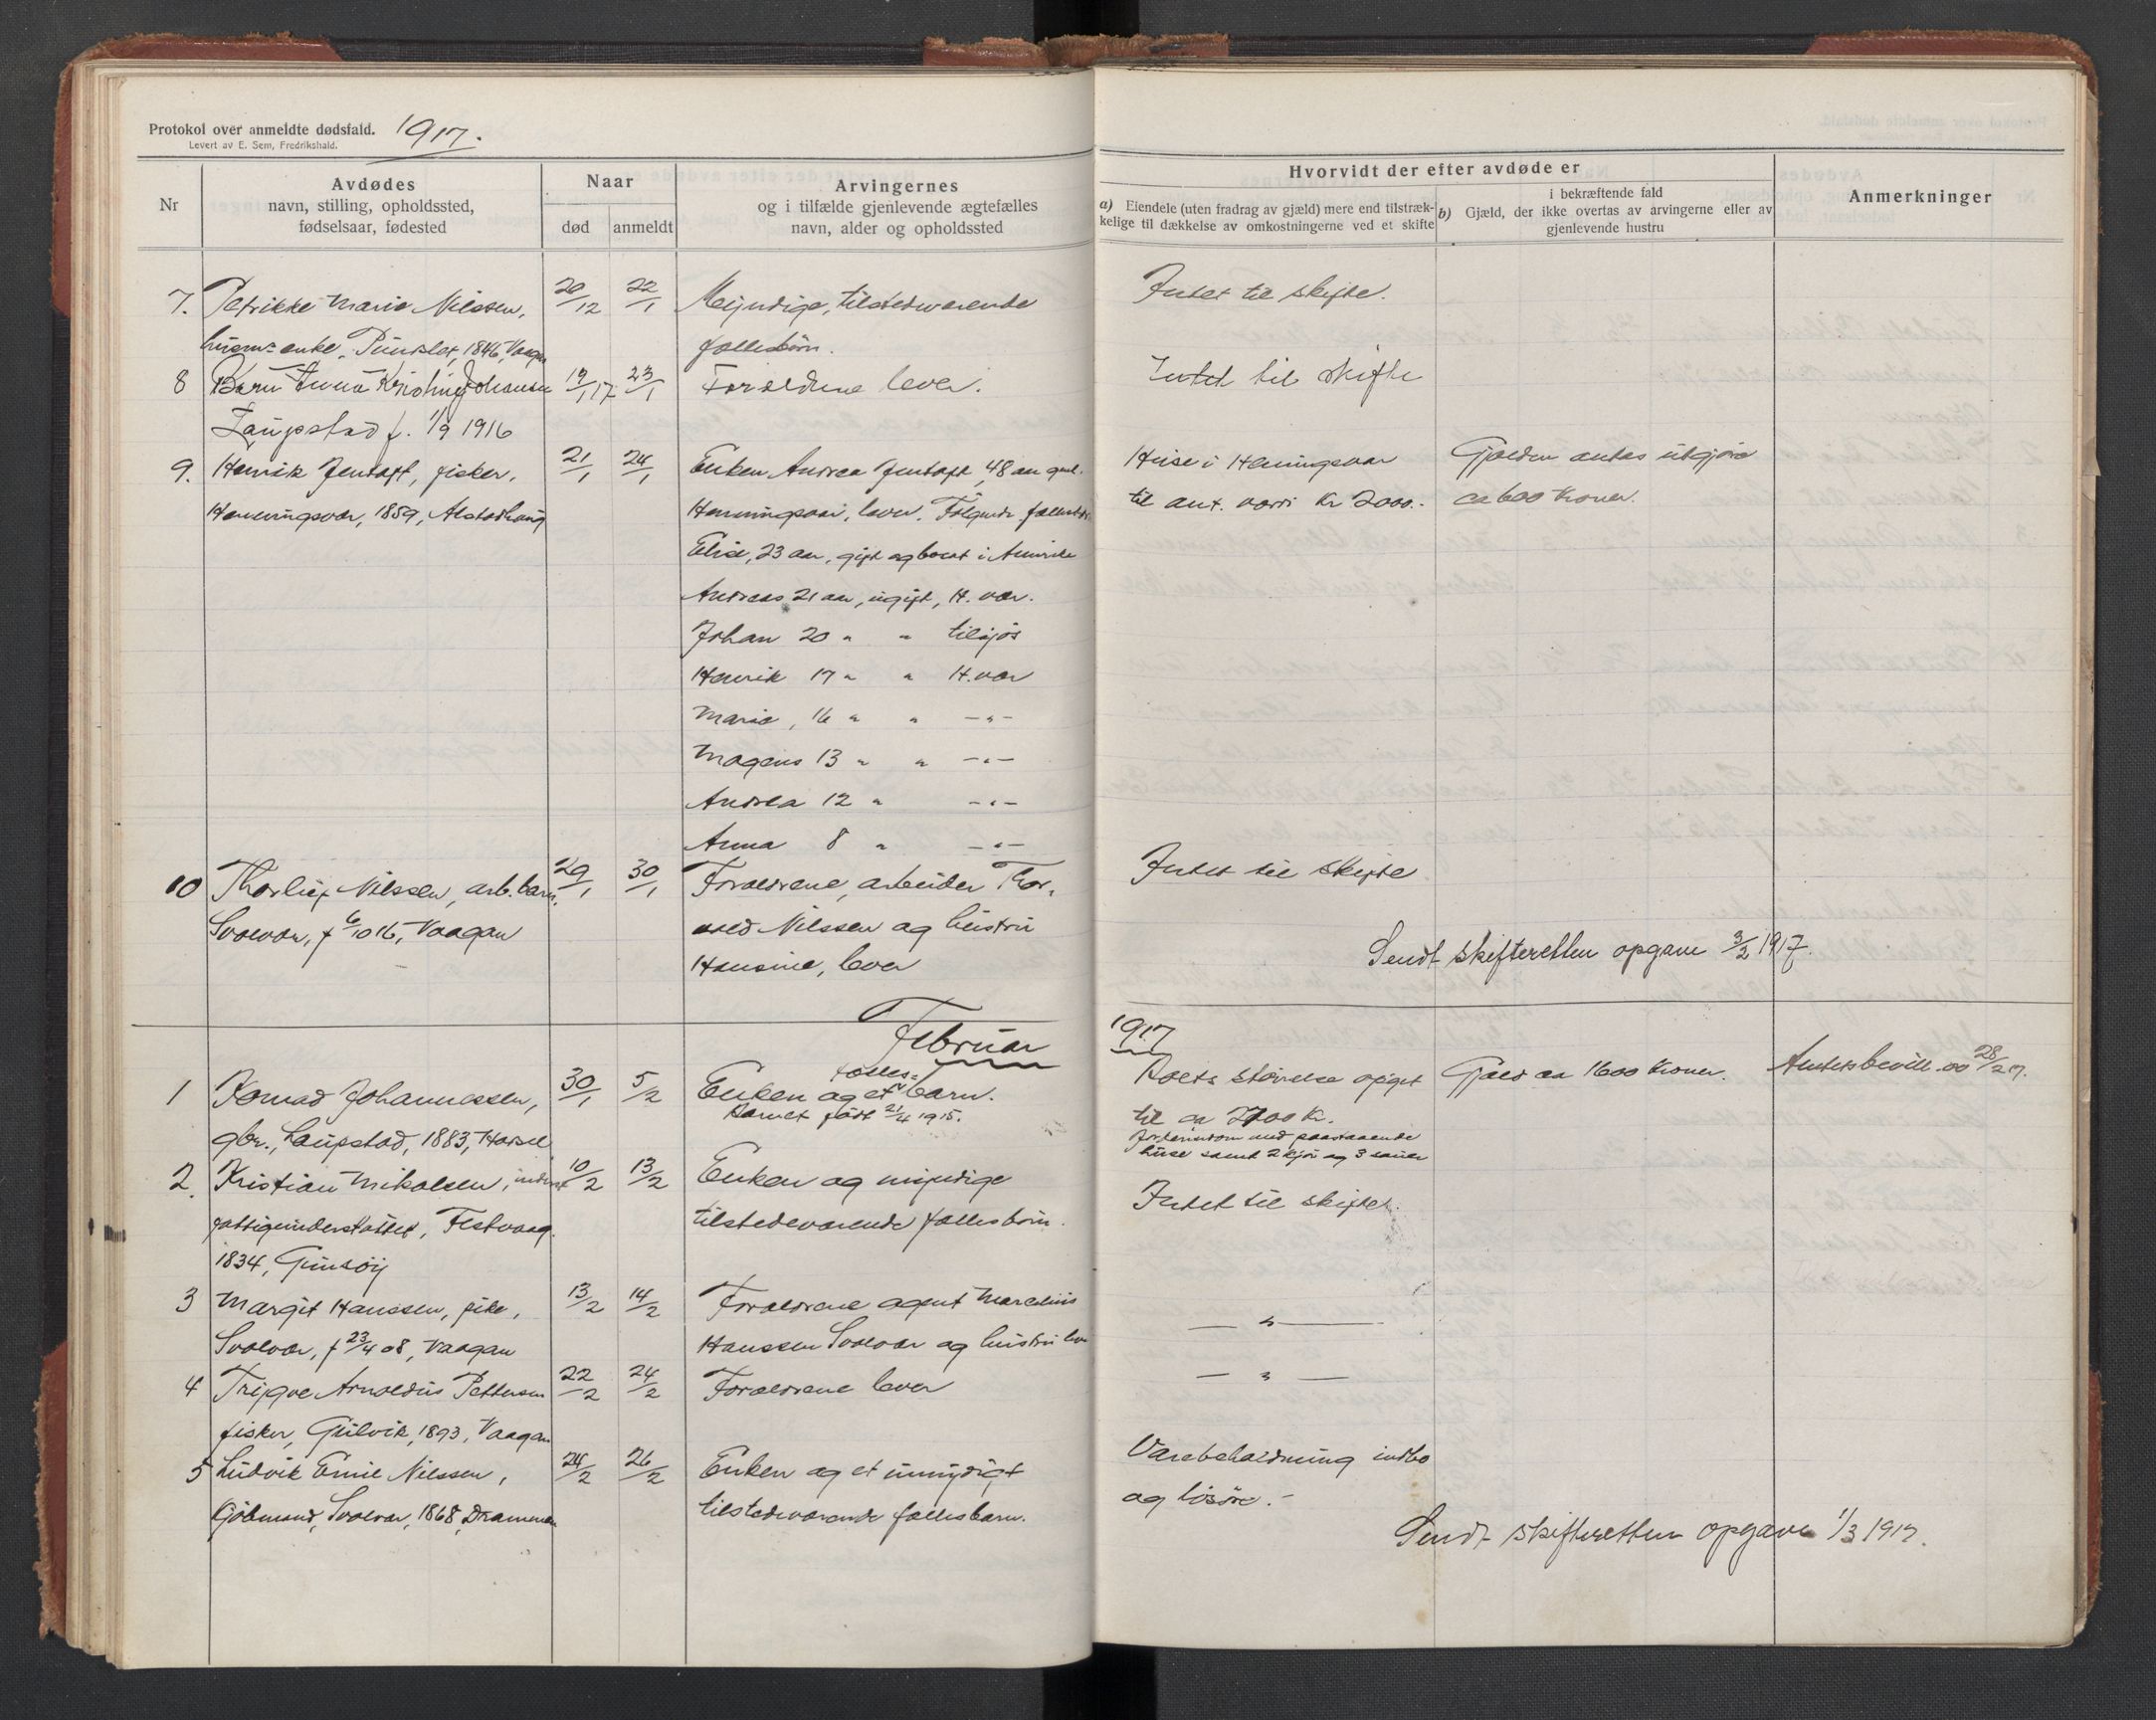 Protokol over anmeldte dødsfald. 1917.
Levert av E. Sem, Fredrikshald.
Nr
Avdødes
navn, stilling, opholdssted,
fødselsaar, fødested
Naar
død
anmeldt
Arvingernes
og i tilfælde gjenlevende ægtefælles
navn, alder og opholdssted
Hvorvidt der efter avdøde er
a) Eiendele (uten fradrag av gjæld) mere end tilstræk-
kelige til dækkelse av omkostningerne ved et skifte
i bekræftende fald
b) Gjæld, der ikke overtas av arvingerne eller av
gjenlevende hustru
Anmerkninger
7. Petrikke Marie Nilssen, 20/12 22/1 Myndige, tilstedværende Intet til skifte.
enke, 1846, Vaagan fællesbörn.
8 Barn Anna Kristine Johansen 19/1 17 23/1 Forældrene lever. Intet til skifte
Laupstad f. 1/9 1916
9. Henrik Jentoft, fisker, 21/1 24/1 Enken Andrea Jentoft, 48 aar gml. Huse i Henningsvær Gjælden antas utgjöre
Henningsvær, 1859, Alstadhaug Henningsvær, lever. Fölgende fællesbörn til ant. værdi Kr 2000.- ca 600 Kroner.
Elise, 23 aar, gift og bosat i Amerika
Andreas 21 aar, ugift, H. vær.
Johan 20 " " tilsjös
Henrik 17 " " H. vær
Marie, 16 " " -"-
Magens 13 " " -"-
Andrea 12 " -"-
Anna 8 " -"-
10 Thorleif Nilssen, arb. barn, 29/1 30/1 Forældrene, arbeider Thor- Intet til skifte
Svolvær, f 6/10 16, Vaagan vald Nilssen og hustru
Hansine, lever
Sendt skifteretten opgave 3/2 1917.
Februar
1917
1 Konrad Johannessen, 30/1 5/2 Enken og et fælles- barn. Boets störrelse opgit Gjæld ca 1600 Kroner. 28/2 17.
gbr., Laupstad, 1883, Hadsel Barnet født 21/4 1915. til ca 2700 Kr.
Jordeiendom med paastaaende
huse samt 2 kjör og 3 sauer
2. Kristian Mikalsen, 10/2 13/2 Enken og myndige Intet til skifte.
fattigunderstöttet, Festvaag. tilstedeværende fællesbörn.
1834, Gimsöy
3 Margit Hanssen, pike, 13/2 14/2 Forældrene agent Marcelius — " —
Svolvær, f 23/4 08, Vaagan Hanssen Svolvær og hustru lever
4 Trygve Arnoldus Pettersen 22/2 24/2 Forældrene lever — " —
fisker, Gulvik, 1893, Vaagan
5 Ludvik Emil Nilssen, 24/2 26/2 Enken og et umyndigt Varebeholdning indbo
Kjöbmand, Svolvær, 1868, Drammen tilstedeværende fællesbarn. og lösöre.-
Sendt skifteretten opgave 1/3 1917.